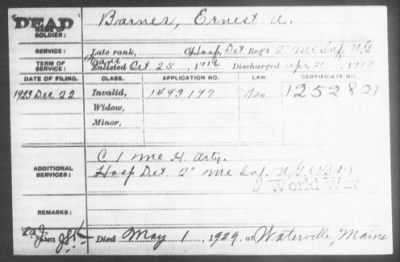 DEAD
NAME OF SOLDIER: Barnes, Ernest A.
SERVICE: Late rank, Hosp. Det Reg't 2" Me Inf. N.G
TERM OF SERVICE: Enlisted Oct. 25, 1916 Discharged Apr 21, 1917
DATE OF FILING. CLASS. APPLICATION NO. LAW. CERTIFICATE NO.
Dec 22 Invalid, 1493197 1252821
Widow,
Minor,
ADDITIONAL SERVICES: C 1 Me H. Arty.
Hosp Det. 2" Me Inf. N.G.
World War
REMARKS:
Died May 1, 1929, at Waterville, Maine